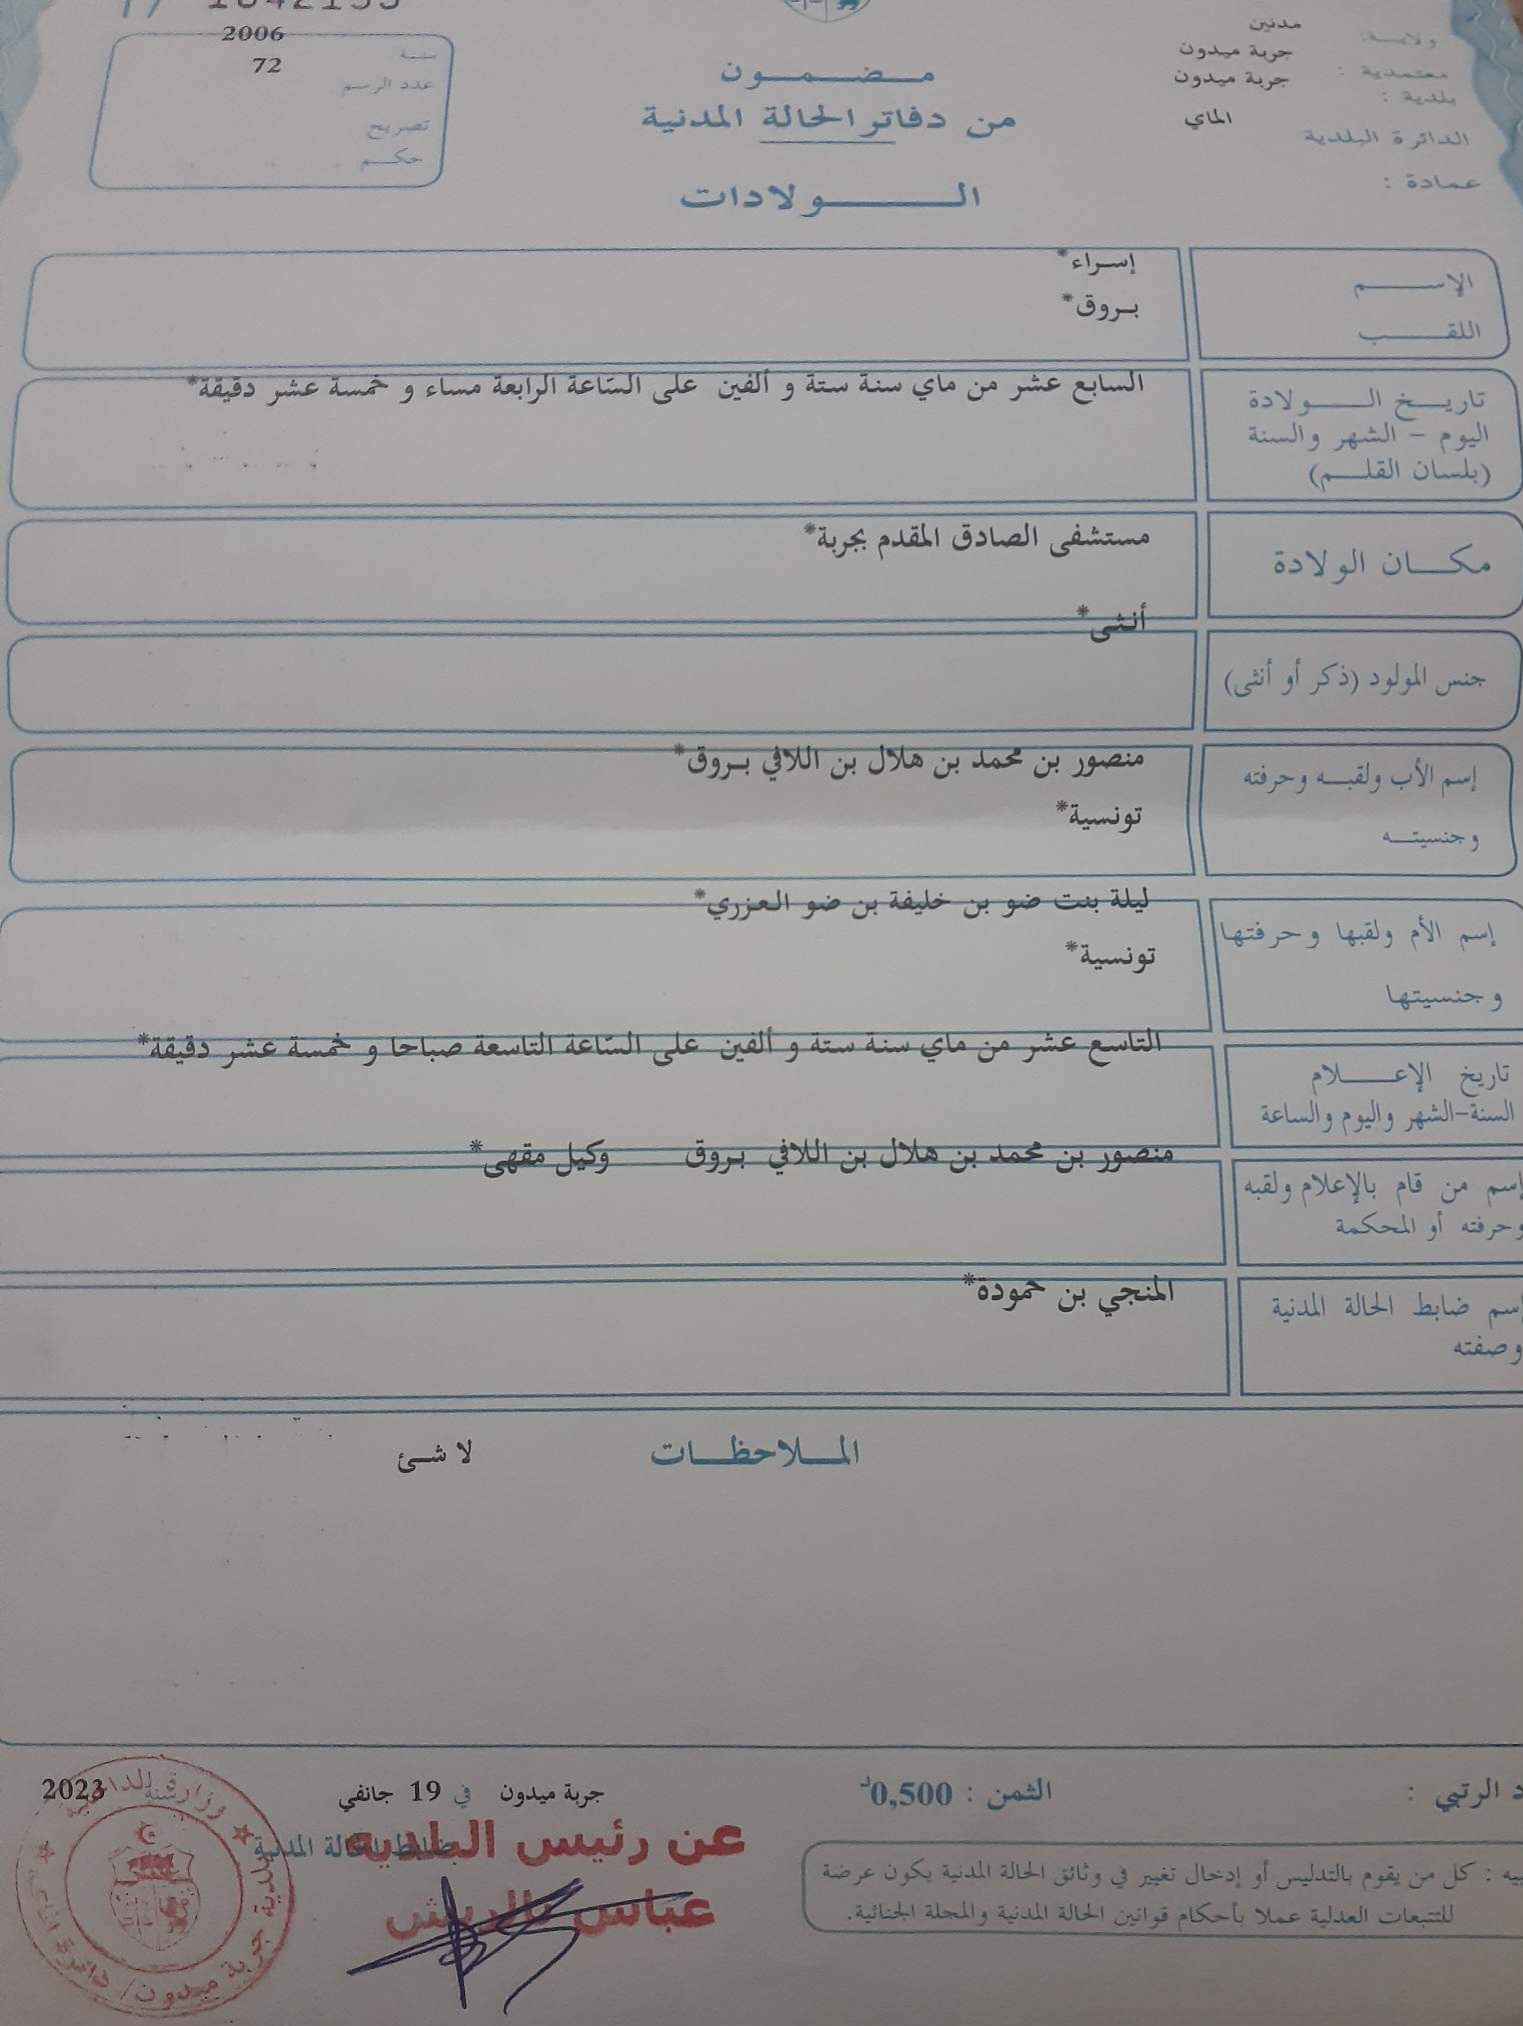 2006
72
سنة
عدد الرسم
تصريح
حكم
ولاية: مدنين
معتمدية : جربة ميدون
بلدية : جربة ميدون
الدائرة البلدية الماي
عمادة :
مضمون
من دفاتر الحالة المدنية
الولادات
الإسم إسراء*
اللقب بروق*
تاريخ الولادة
اليوم - الشهر والسنة
(بلسان القلم)
السابع عشر من ماي سنة ستة و ألفين على الساعة الرابعة مساء و خمسة عشر دقيقة*
مكان الولادة
مستشفى الصادق المقدم بجربة*
أنثى*
جنس المولود (ذكر أو أنثى)
إسم الأب ولقبه وحرفته
وجنسيته
منصور بن محمد بن هلال بن اللافي بروق*
تونسية*
إسم الأم ولقبها وحرفتها
وجنسيتها
ليلة بنت ضو بن خليفة بن ضو العزري*
تونسية*
تاريخ الإعلام
السنة-الشهر واليوم والساعة
التاسع عشر من ماي سنة ستة و ألفين على الساعة التاسعة صباحا و خمسة عشر دقيقة*
إسم من قام بالإعلام ولقبه
وحرفته أو المحكمة
منصور بن محمد بن هلال بن اللافي بروق وكيل مقهى*
إسم ضابط الحالة المدنية
وصفته
المنجي بن حمودة*
الملاحظات لا شئ
الرتبي : الثمن : 0,500د
جربة ميدون في 19 جانفي سنة 2023
ضابط الحالة المدنية
عن رئيس البلدية
عباس
كل من يقوم بالتدليس أو إدخال تغيير في وثائق الحالة المدنية يكون عرضة
للتتبعات العدلية عملا بأحكام قوانين الحالة المدنية والمجلة الجنائية.
وزارة الداخلية
بلدية جربة ميدون